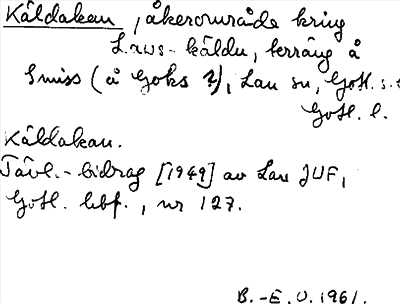 Käldakan, åkerområde kring
Laws-käldu, terräng å
Smiss (å Goks ?), Lau sn, Gotl. s.
Gotl. l.
Käldakan.
Tävl.-bidrag [1949] av Lau JUF,
Gotl. hbf., nr 127.
B.-E. O. 1961.